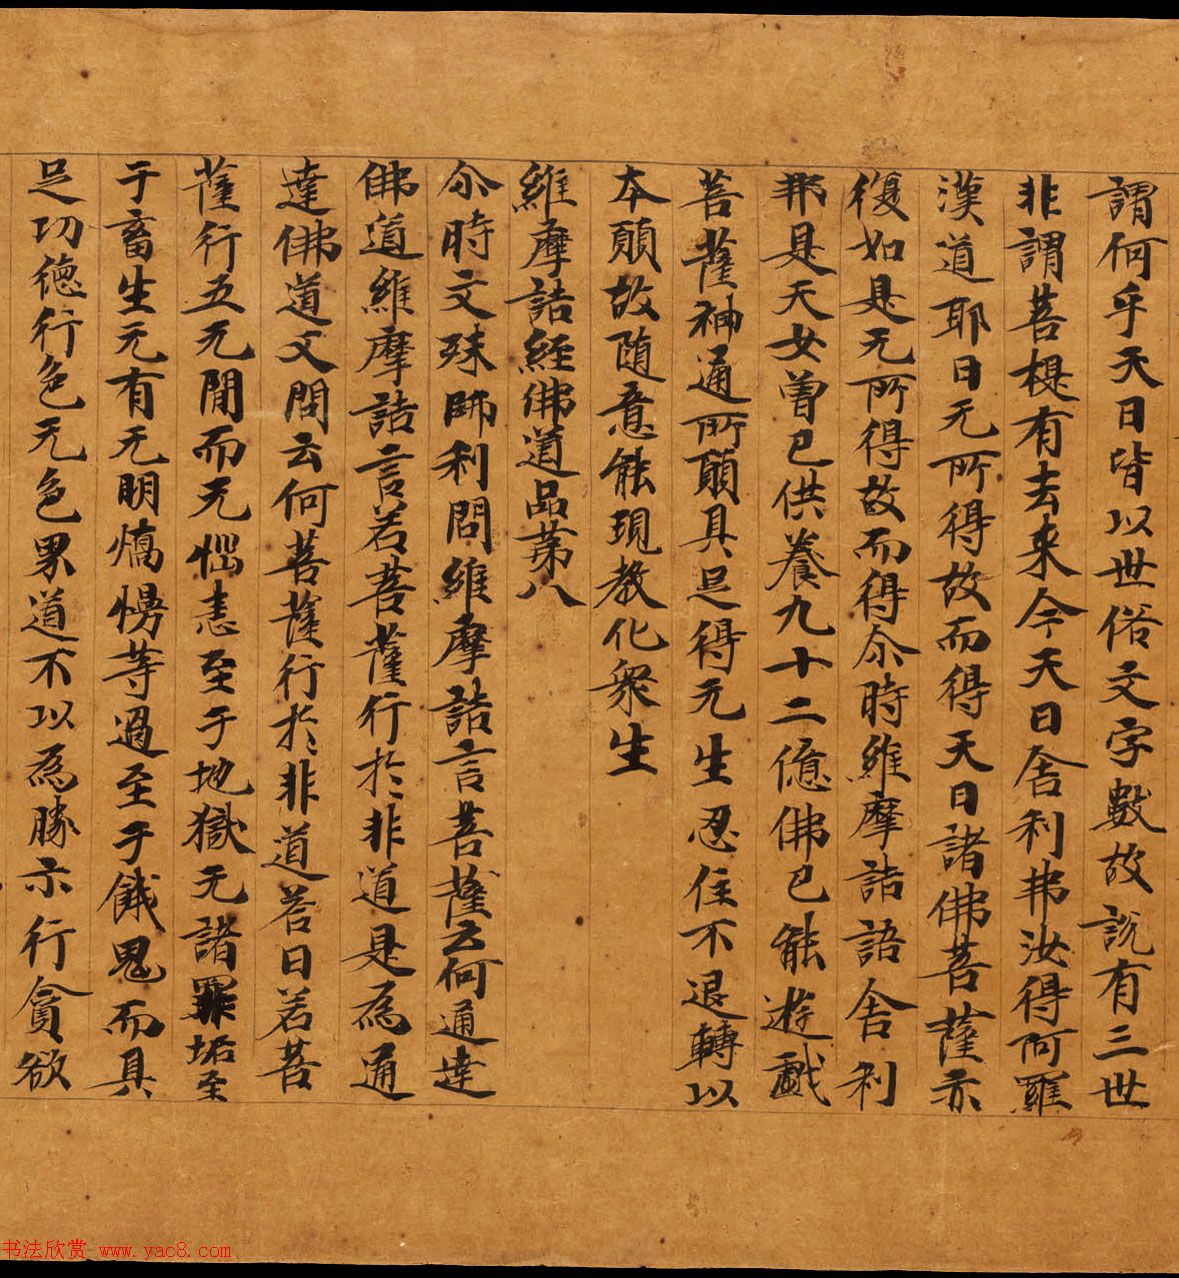 謂何乎天曰皆以世俗文字數故說有三世
非謂菩提有去来今天曰舍利弗汝得阿羅
漢道耶曰无所得故而得天曰諸佛菩薩亦
復如是无所得故而得尒時維摩詰語舍利
弗是天女曽已供養九十二億佛已能遊戲
菩薩神通所願具足得无生忍住不退轉以
本願故随意能現教化衆生
維摩詰經佛道品苐八
尒時文殊師利問維摩詰言菩薩云何通達
佛道維摩詰言若菩薩行於非道是為通
達佛道又問云何菩薩行於非道荅曰若菩
薩行五无間而无惱恚至于地獄无諸罪垢至
于畜生无有无明憍慢等過至于餓鬼而具
足功德行色无色界道不以為勝示行貪欲
书法欣赏 www.yac8.com